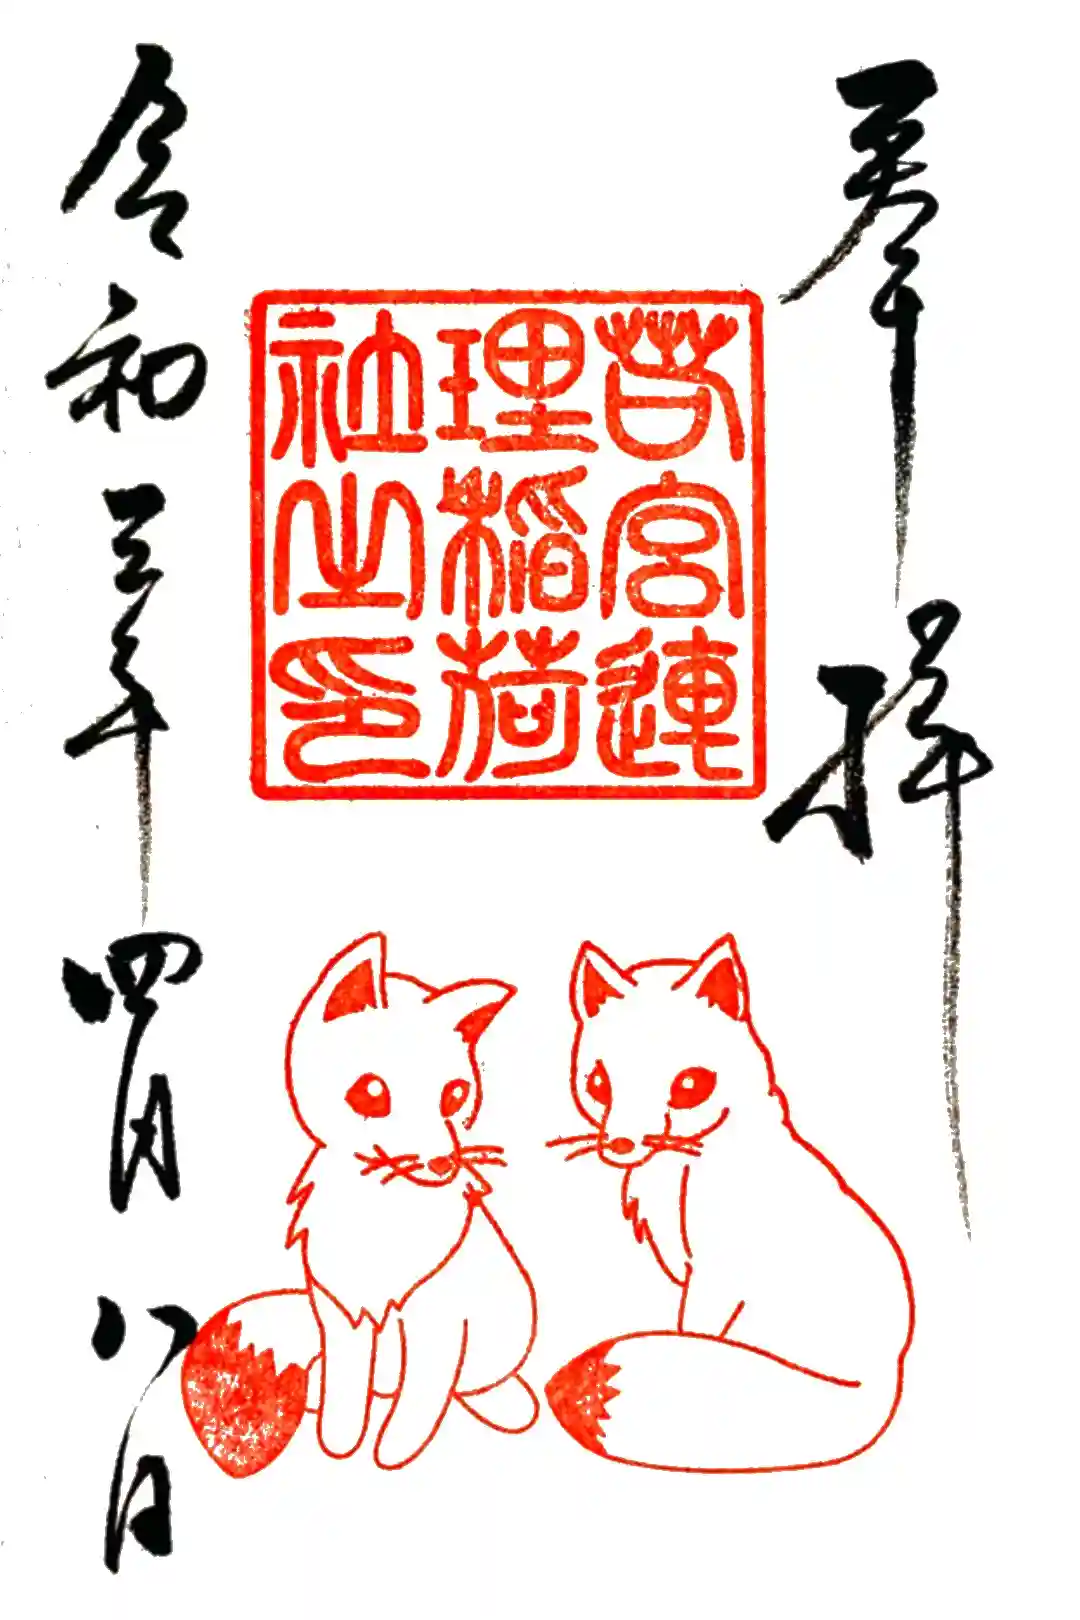 奉拝
若宮連
理稲荷
社之印
令和三年四月八日